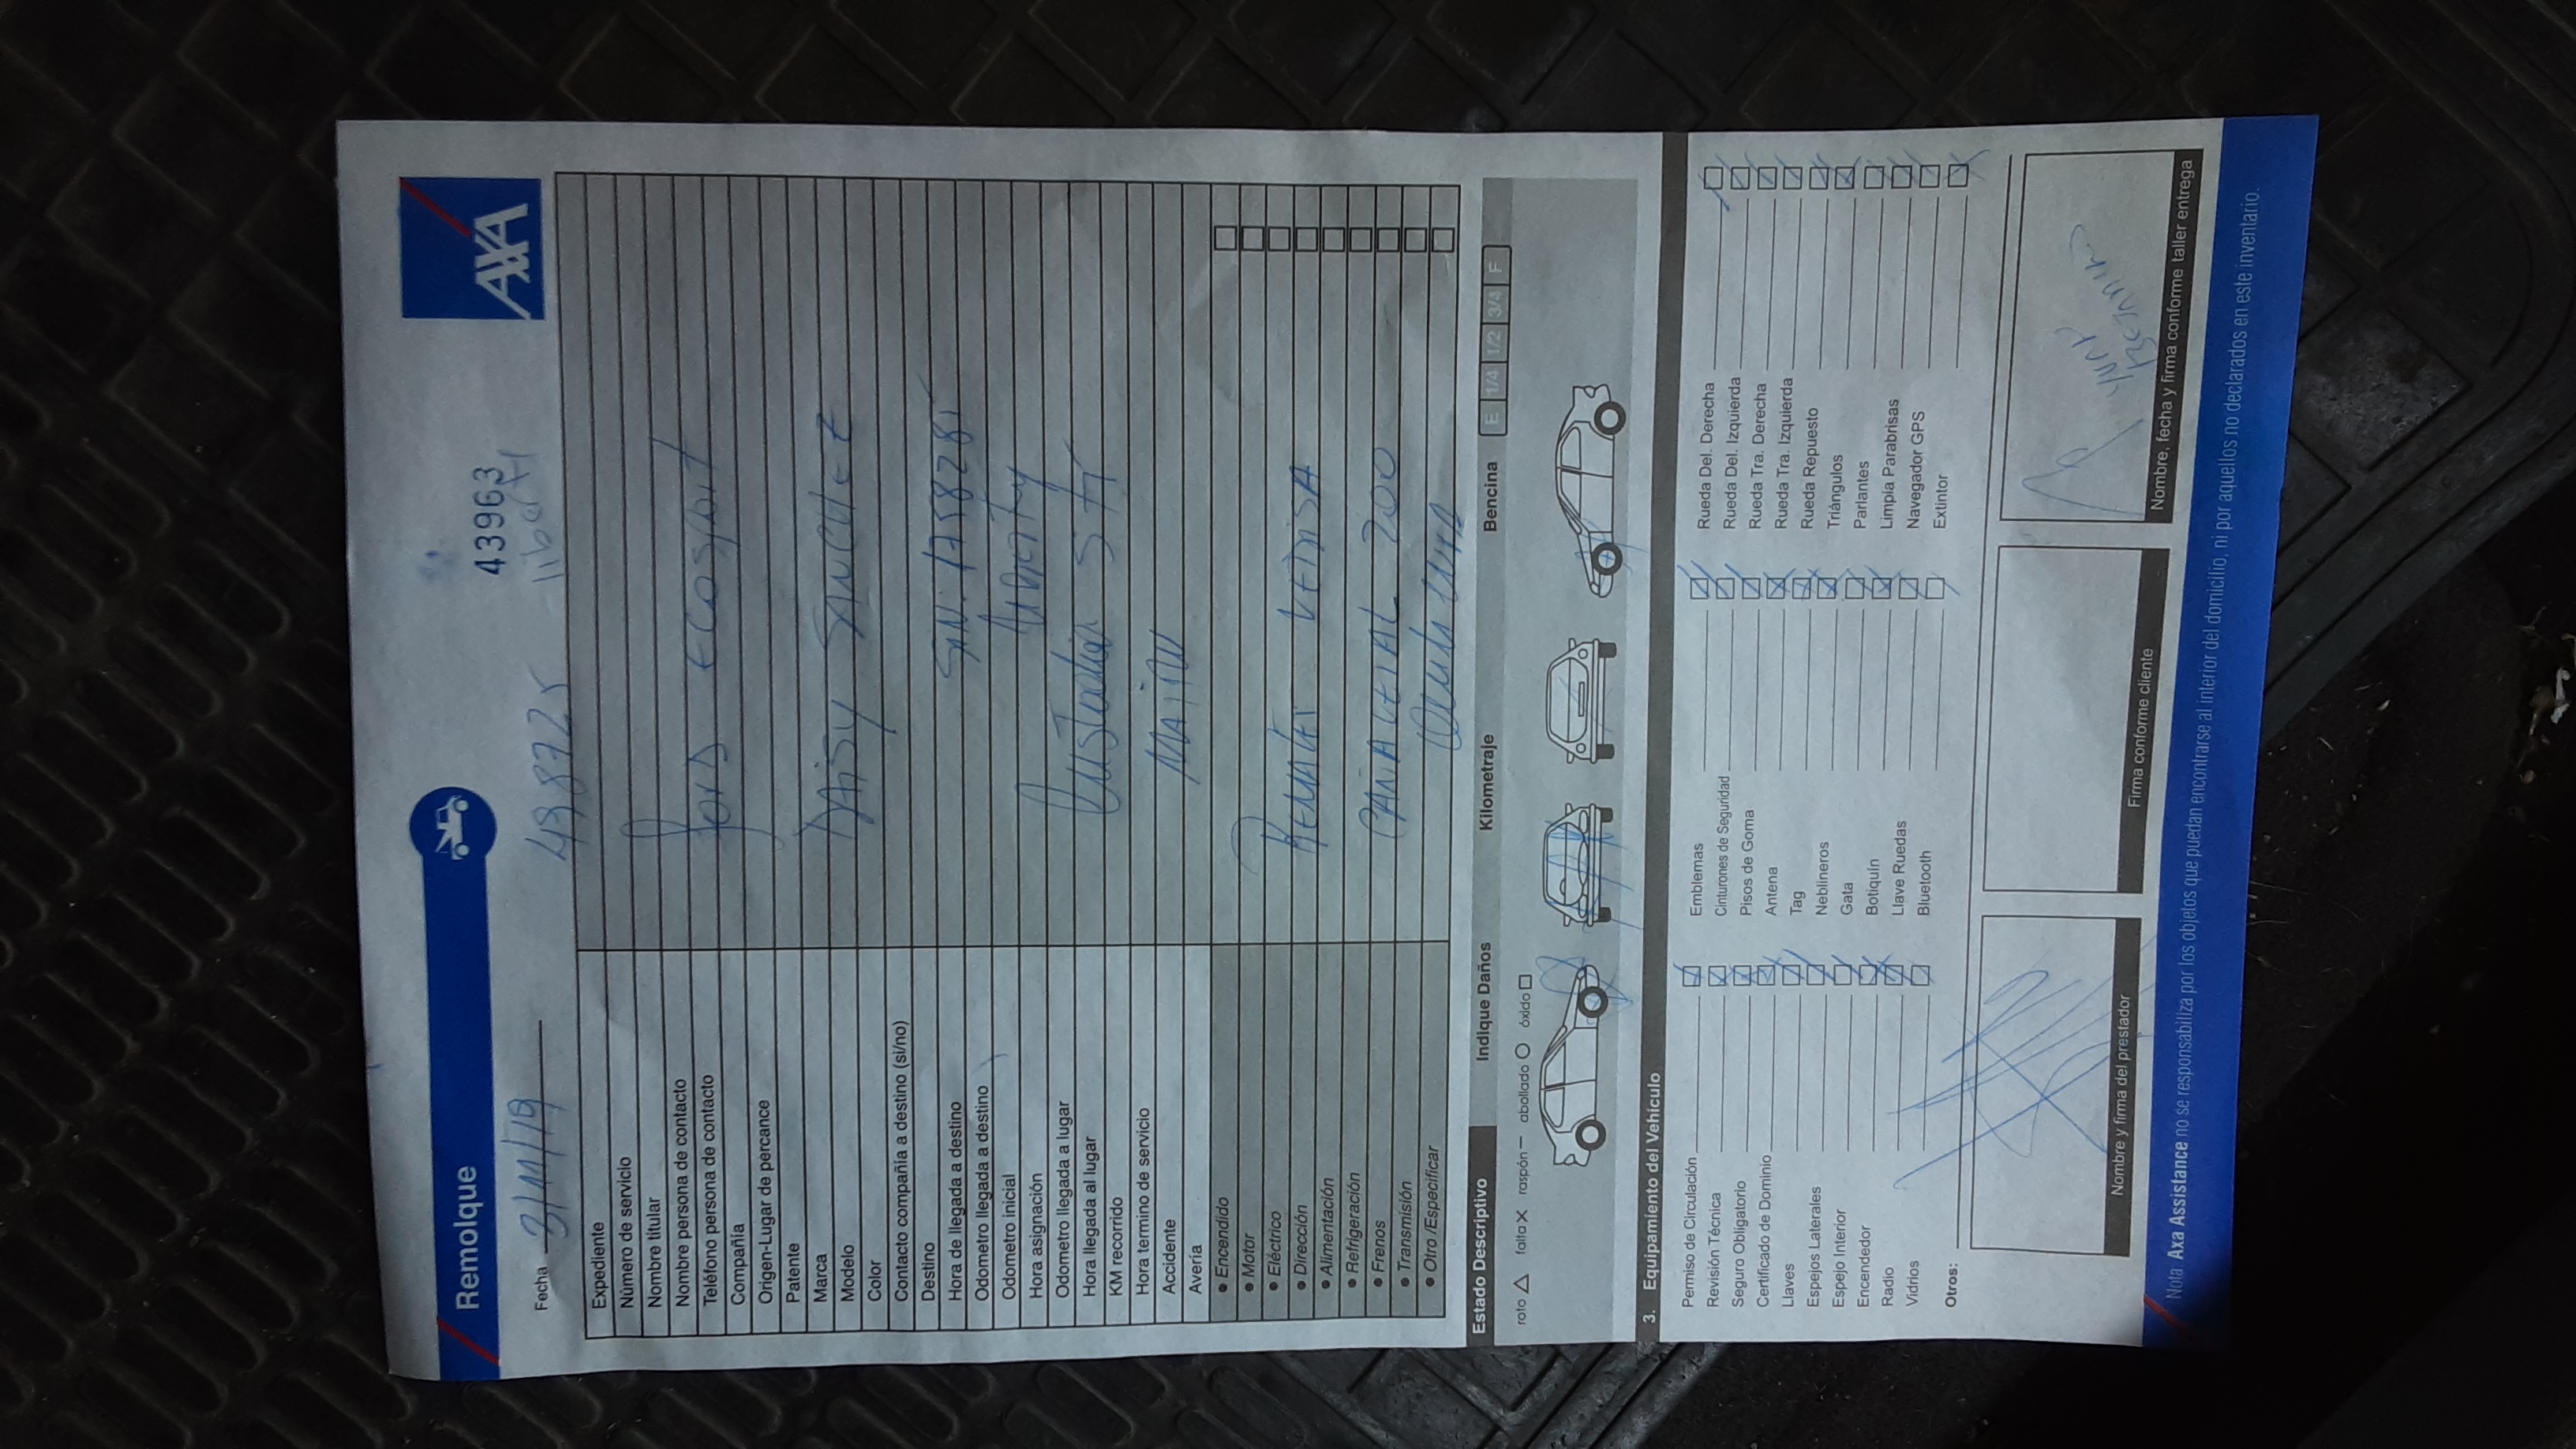 Remolque
AXA
43963
liberty
Fecha 3/11/19
Expediente
Número de servicio
Nombre titular
Nombre persona de contacto
Teléfono persona de contacto
Compañía
Origen-Lugar de percance
Patente
Marca
Modelo
Color
Contacto compañía a destino (si/no)
Destino
Hora de llegada a destino
Odometro llegada a destino
Odometro inicial
Hora asignación
Odometro llegada a lugar
Hora llegada al lugar
KM recorrido
Hora termino de servicio
Accidente
Avería
• Encendido
• Motor
• Eléctrico
• Dirección
• Alimentación
• Refrigeración
• Frenos
• Transmisión
• Otro /Especificar
Ford ECOSport
DAisy SANCHEZ
Liberty
Custodia
MAIPU
VEDISA
200
Estado Descriptivo
Indique Daños
Kilometraje
Bencina
E 1/4 1/2 3/4 F
roto falta raspón abollado óxido
3. Equipamiento del Vehículo
Permiso de Circulación
Revisión Técnica
Seguro Obligatorio
Certificado de Dominio
Llaves
Espejos Laterales
Espejo Interior
Encendedor
Radio
Vidrios
Otros:
Emblemas
Cinturones de Seguridad
Pisos de Goma
Antena
Tag
Neblineros
Gata
Botiquín
Llave Ruedas
Bluetooth
Rueda Del. Derecha
Rueda Del. Izquierda
Rueda Tra. Derecha
Rueda Tra. Izquierda
Rueda Repuesto
Triángulos
Parlantes
Limpia Parabrisas
Navegador GPS
Extintor
Nombre y firma del prestador
Firma conforme cliente
Nombre, fecha y firma conforme taller entrega
Nota Axa Assistance no se responsabiliza por los objetos que puedan encontrarse al interior del domicilio, ni por aquellos no declarados en este inventario.